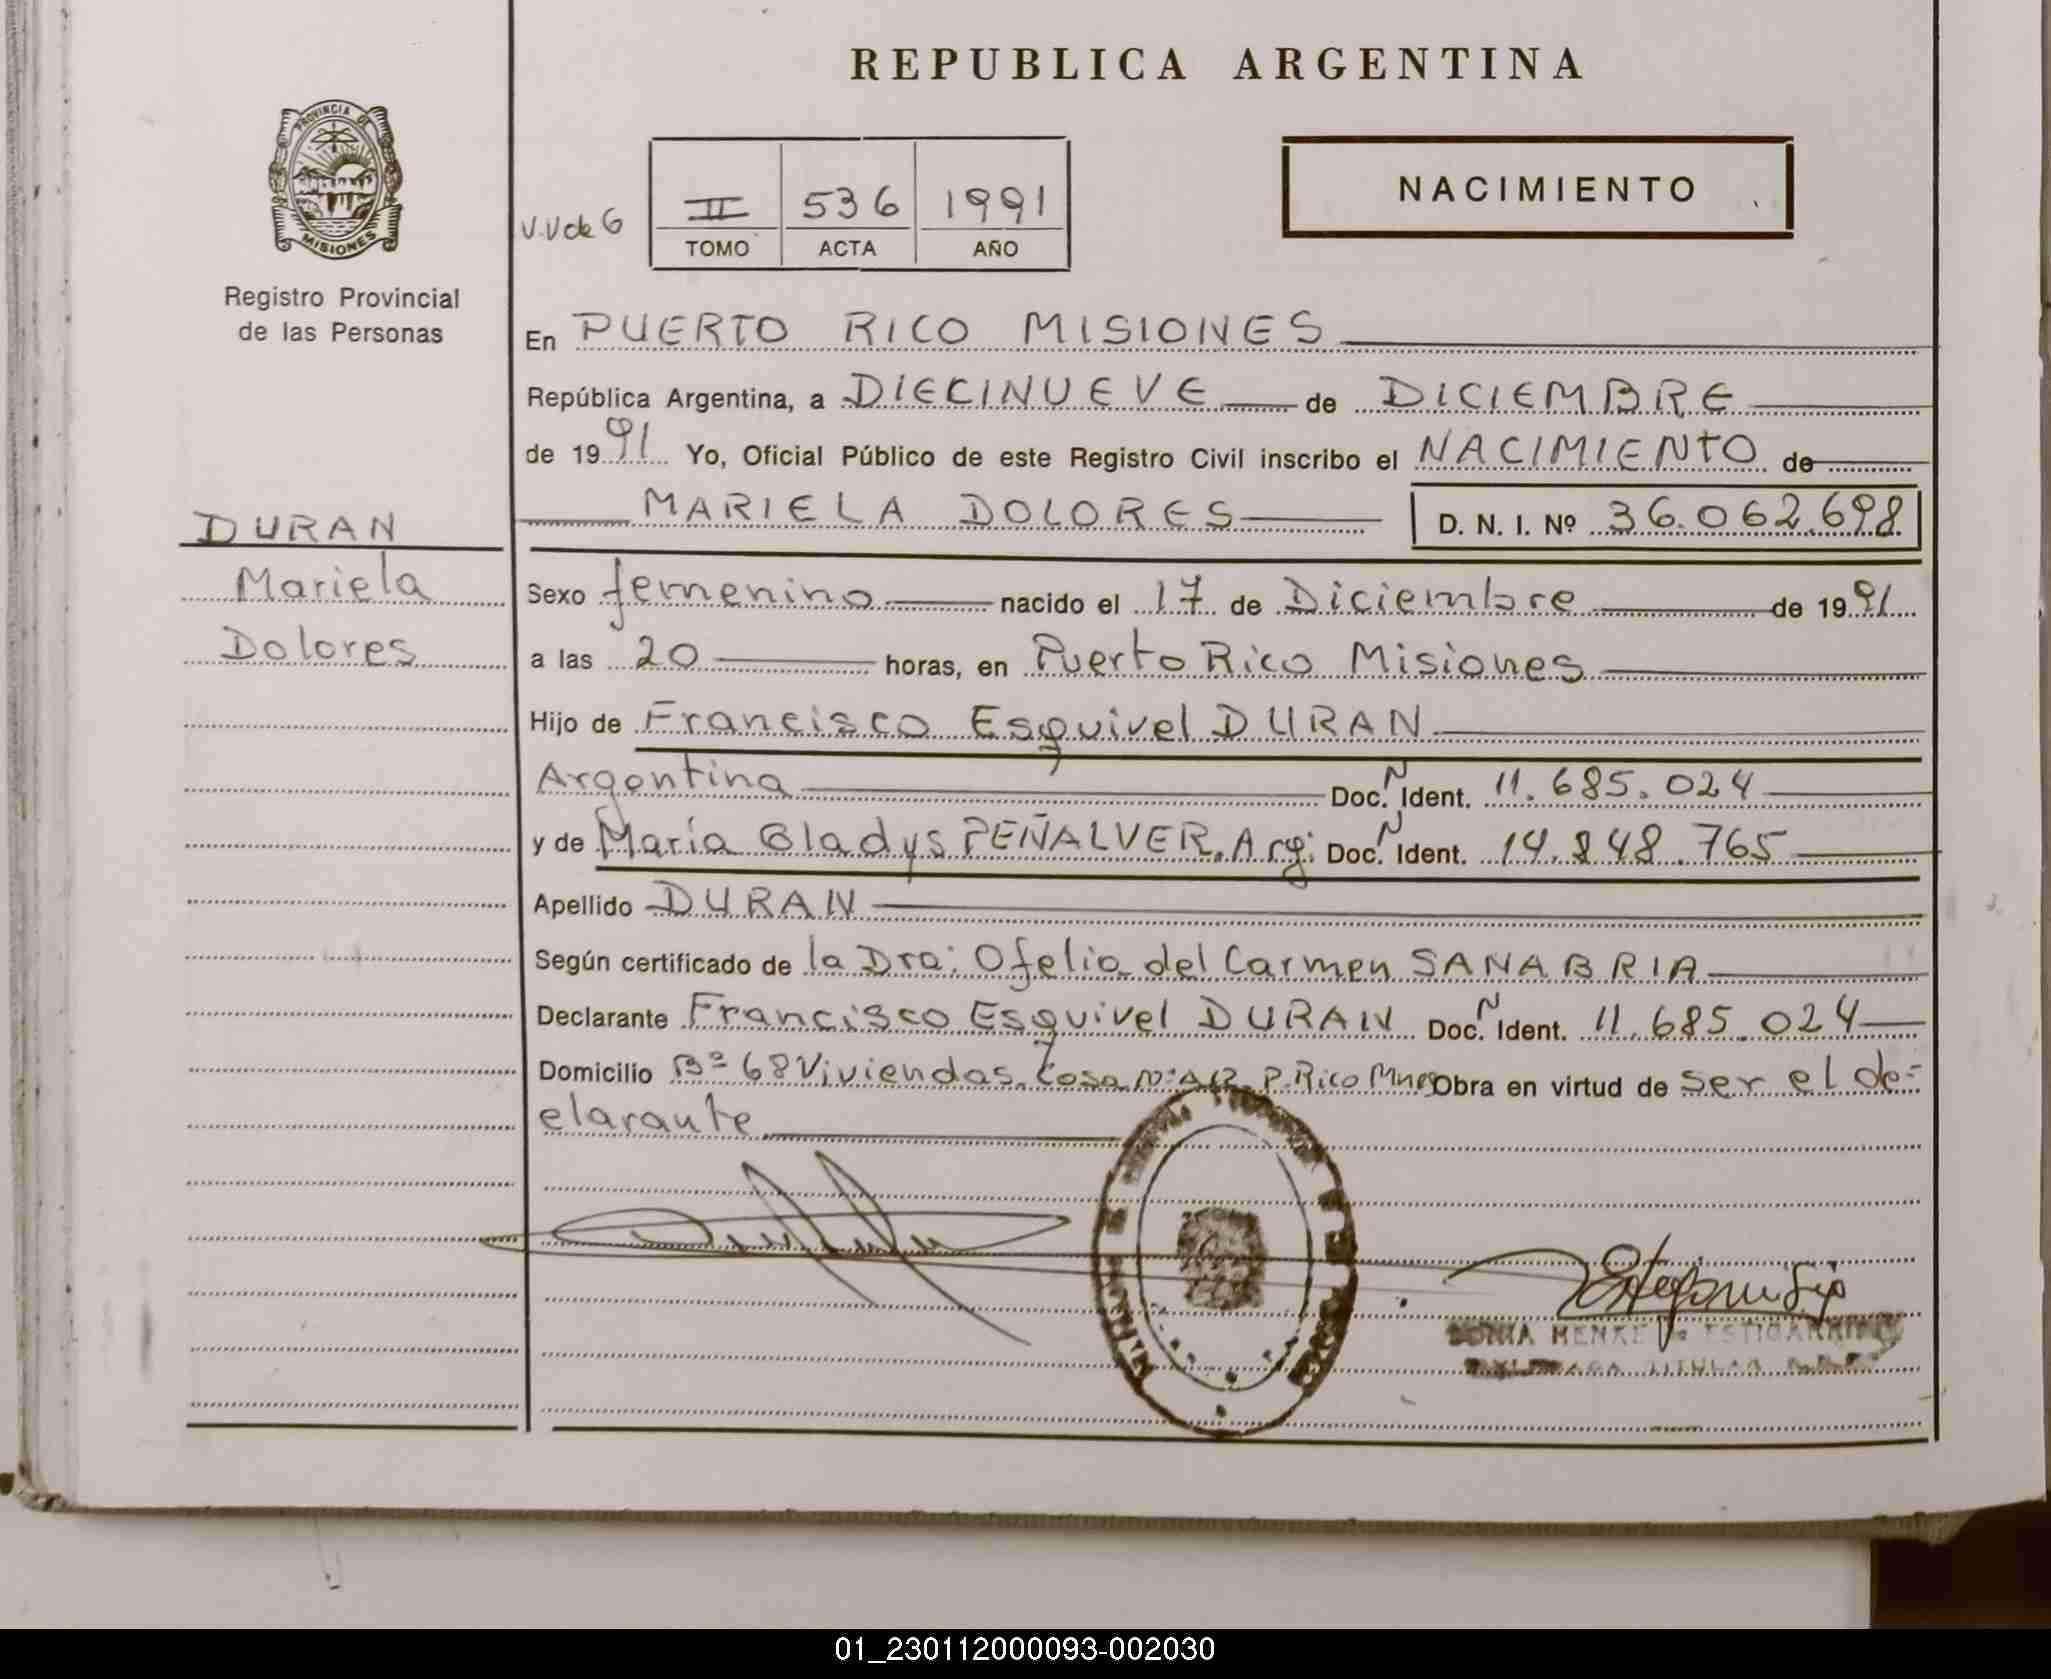 REPUBLICA ARGENTINA
PROVINCIA DE
MISIONES
Registro Provincial
de las Personas
NACIMIENTO
V.V de G
II 536 1991
TOMO ACTA AÑO
En PUERTO RICO MISIONES
República Argentina, a DIECINUEVE de DICIEMBRE
de 1991 Yo, Oficial Público de este Registro Civil inscribo el NACIMIENTO de
MARIELA DOLORES D. N. I. Nº 36.062.698
DURAN
Mariela
Dolores
Sexo femenino nacido el 17 de Diciembre de 1991
a las 20 horas, en Puerto Rico Misiones
Hijo de Francisco Esquivel DURAN
Argentina Doc. N Ident. 11.685.024
y de María Gladys PEÑALVER. Arg: Doc. N Ident. 14.848.765
Apellido DURAN
Según certificado de la Dra: Ofelia del Carmen SANABRIA
Declarante Francisco Esquivel DURAN Doc. N Ident. 11.685.024
Domicilio Bº 68 Viviendas. Casa Nº P. Rico Mnes Obra en virtud de ser el de=
clarante
SONIA HENKE
TITULAR
01_230112000093-002030